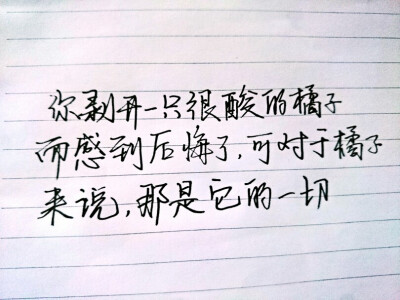 你剥开一只很酸的橘子
而感到后悔了,可对于橘子
来说,那是它的一切